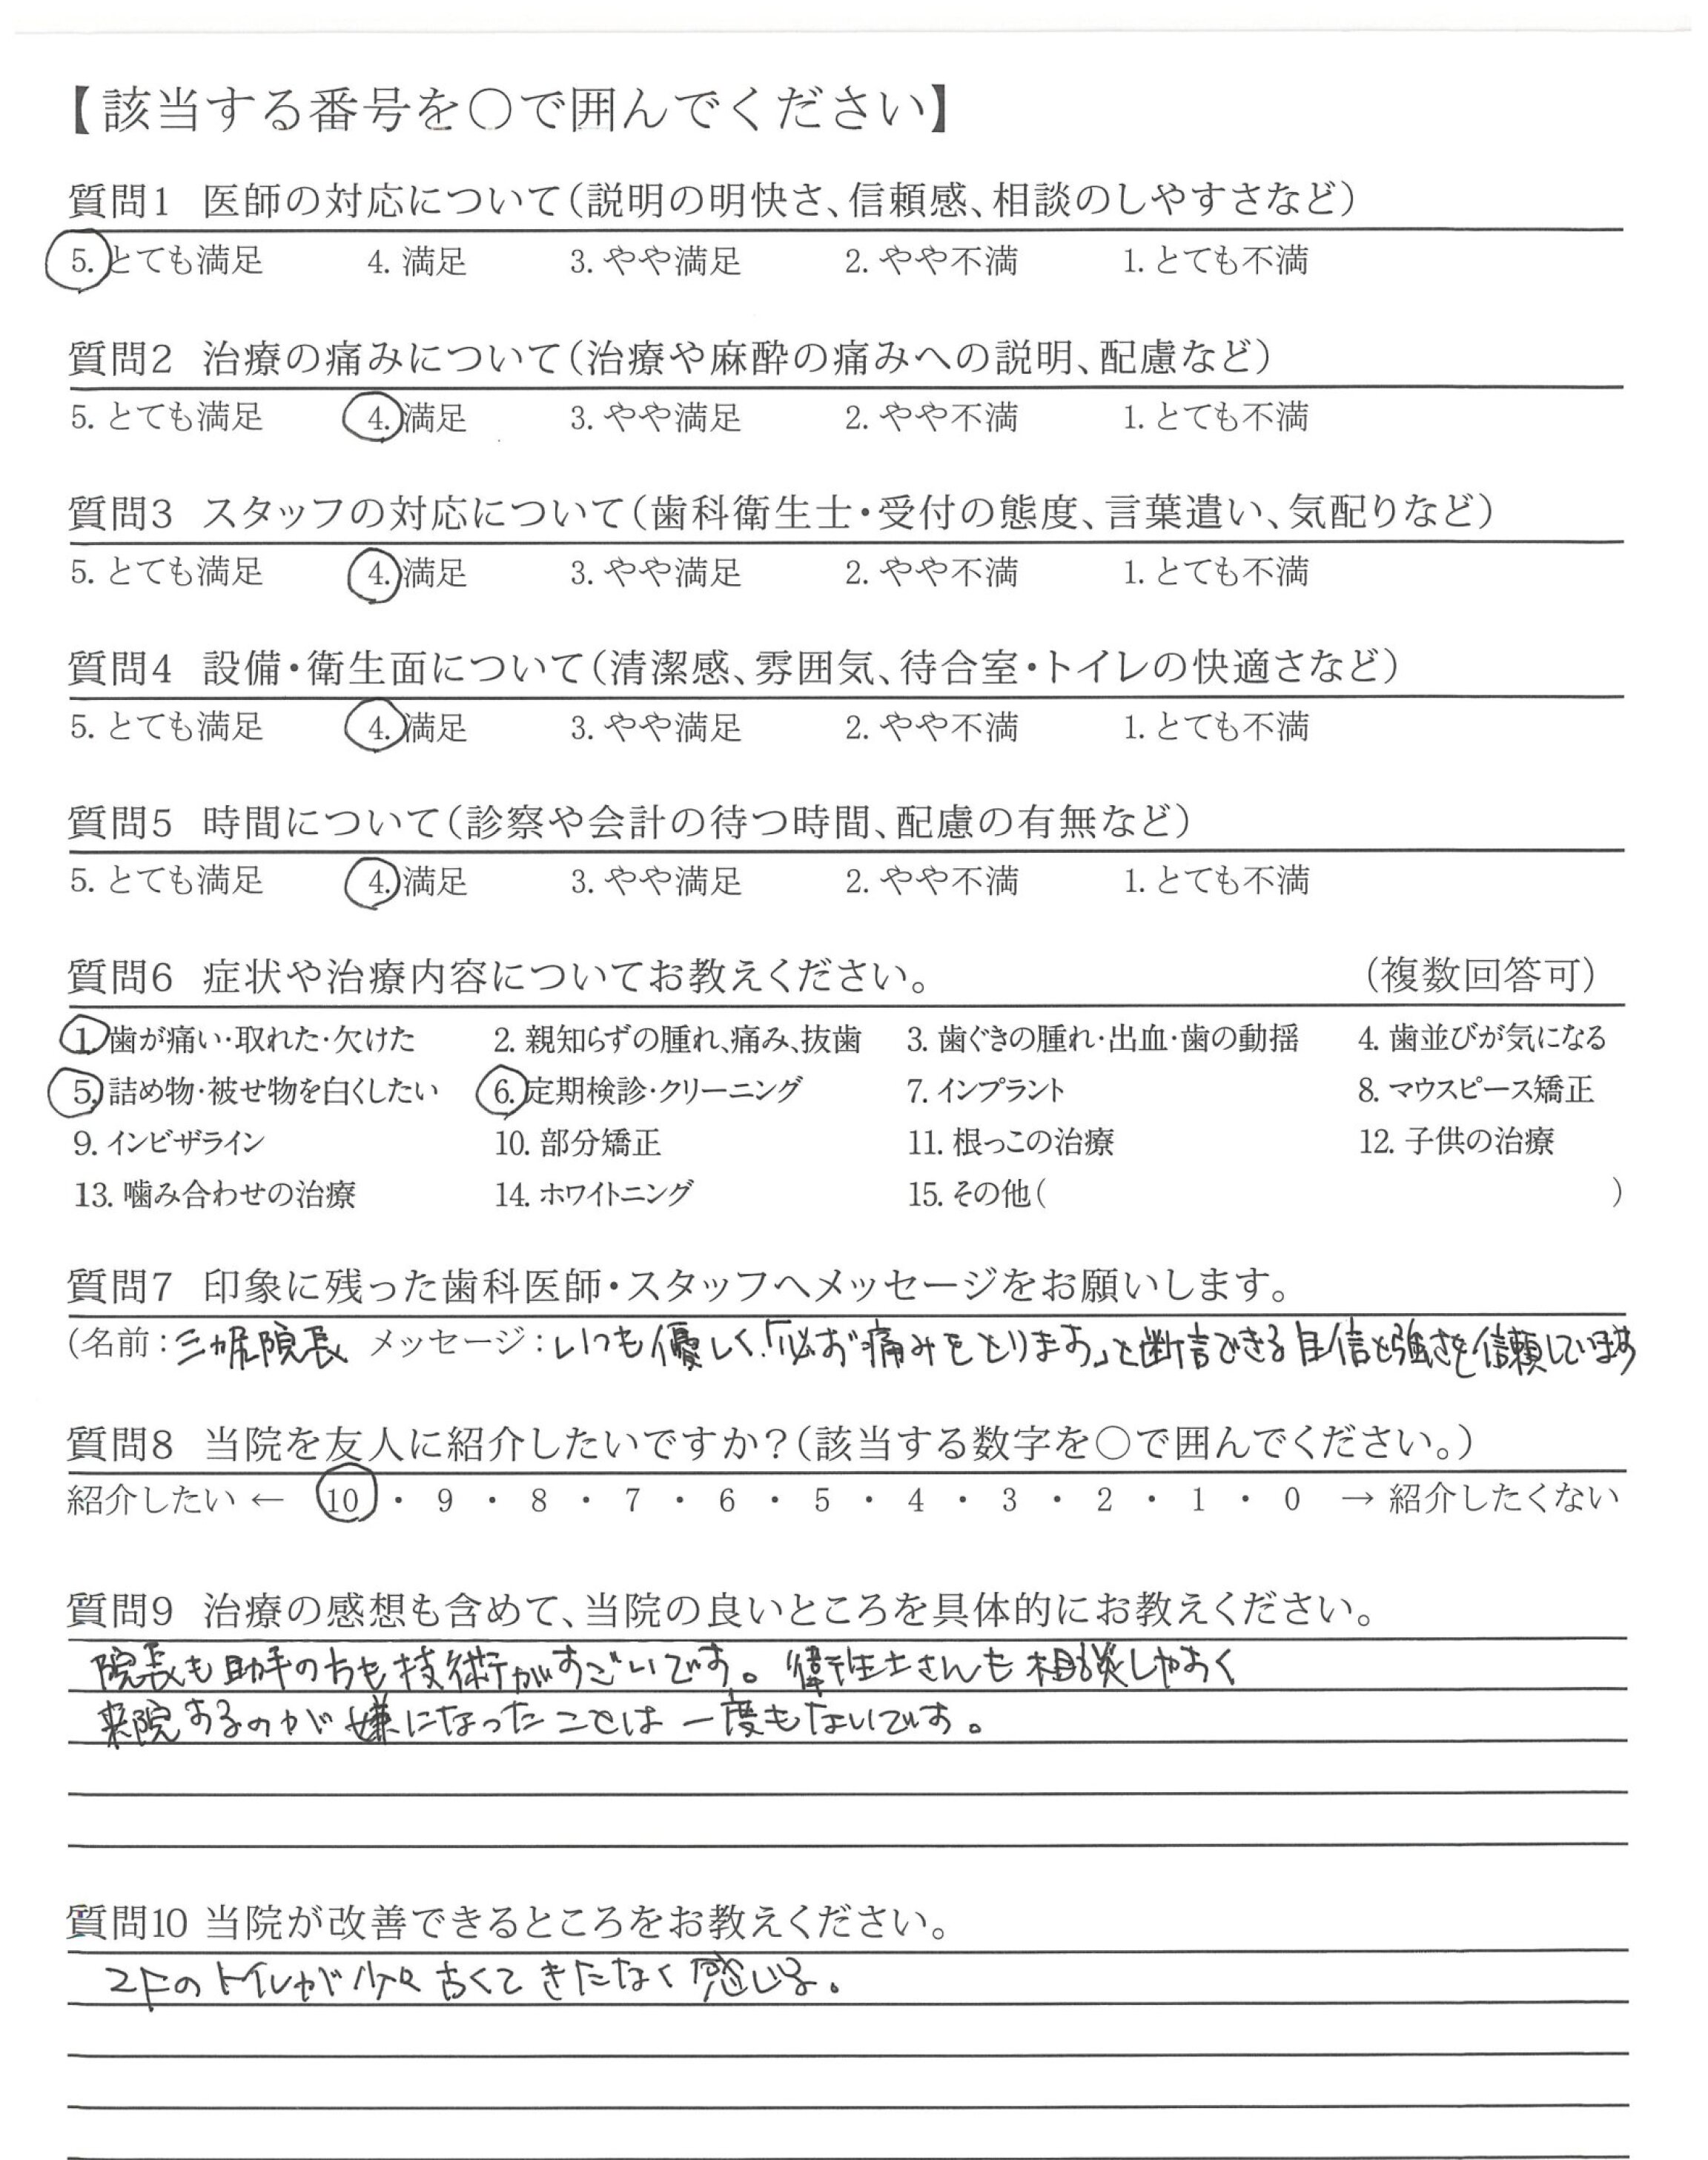 【該当する番号を○で囲んでください】
質問1 医師の対応について(説明の明快さ、信頼感、相談のしやすさなど)
5. とても満足 4. 満足 3. やや満足 2. やや不満 1. とても不満
質問2 治療の痛みについて(治療や麻酔の痛みへの説明、配慮など)
5. とても満足 4. 満足 3. やや満足 2. やや不満 1. とても不満
質問3 スタッフの対応について(歯科衛生士・受付の態度、言葉遣い、気配りなど)
5. とても満足 4. 満足 3. やや満足 2. やや不満 1. とても不満
質問4 設備・衛生面について(清潔感、雰囲気、待合室・トイレの快適さなど)
5. とても満足 4. 満足 3. やや満足 2. やや不満 1. とても不満
質問5 時間について(診察や会計の待つ時間、配慮の有無など)
5. とても満足 4. 満足 3. やや満足 2. やや不満 1. とても不満
質問6 症状や治療内容についてお教えください。 (複数回答可)
1. 歯が痛い・取れた・欠けた 2. 親知らずの腫れ、痛み、抜歯 3. 歯ぐきの腫れ・出血・歯の動揺 4. 歯並びが気になる
5. 詰め物・被せ物を白くしたい 6. 定期検診・クリーニング 7. インプラント 8. マウスピース矯正
9. インビザライン 10. 部分矯正 11. 根っこの治療 12. 子供の治療
13. 噛み合わせの治療 14. ホワイトニング 15. その他( )
質問7 印象に残った歯科医師・スタッフへメッセージをお願いします。
(名前:院長 メッセージ:いつも優しく、「必ず痛みをとります」と断言できる自信と強さを信頼しています
質問8 当院を友人に紹介したいですか?(該当する数字を○で囲んでください。)
紹介したい ← 10 ・ 9 ・ 8 ・ 7 ・ 6 ・ 5 ・ 4 ・ 3 ・ 2 ・ 1 ・ 0 → 紹介したくない
質問9 治療の感想も含めて、当院の良いところを具体的にお教えください。
院長も助手の方も技術がすごいです。衛生士さんも相談しやすく
来院するのが嫌になったことは一度もないです。
質問10 当院が改善できるところをお教えください。
2Fのトイレが少々古くてきたなく感じる。